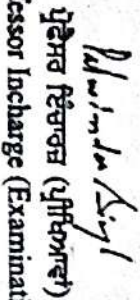 Singh
ਪ੍ਰੋਫੈਸਰ ਇੰਚਾਰਜ (ਪ੍ਰੀਖਿਆਵਾਂ)
essor Incharge (Examinati